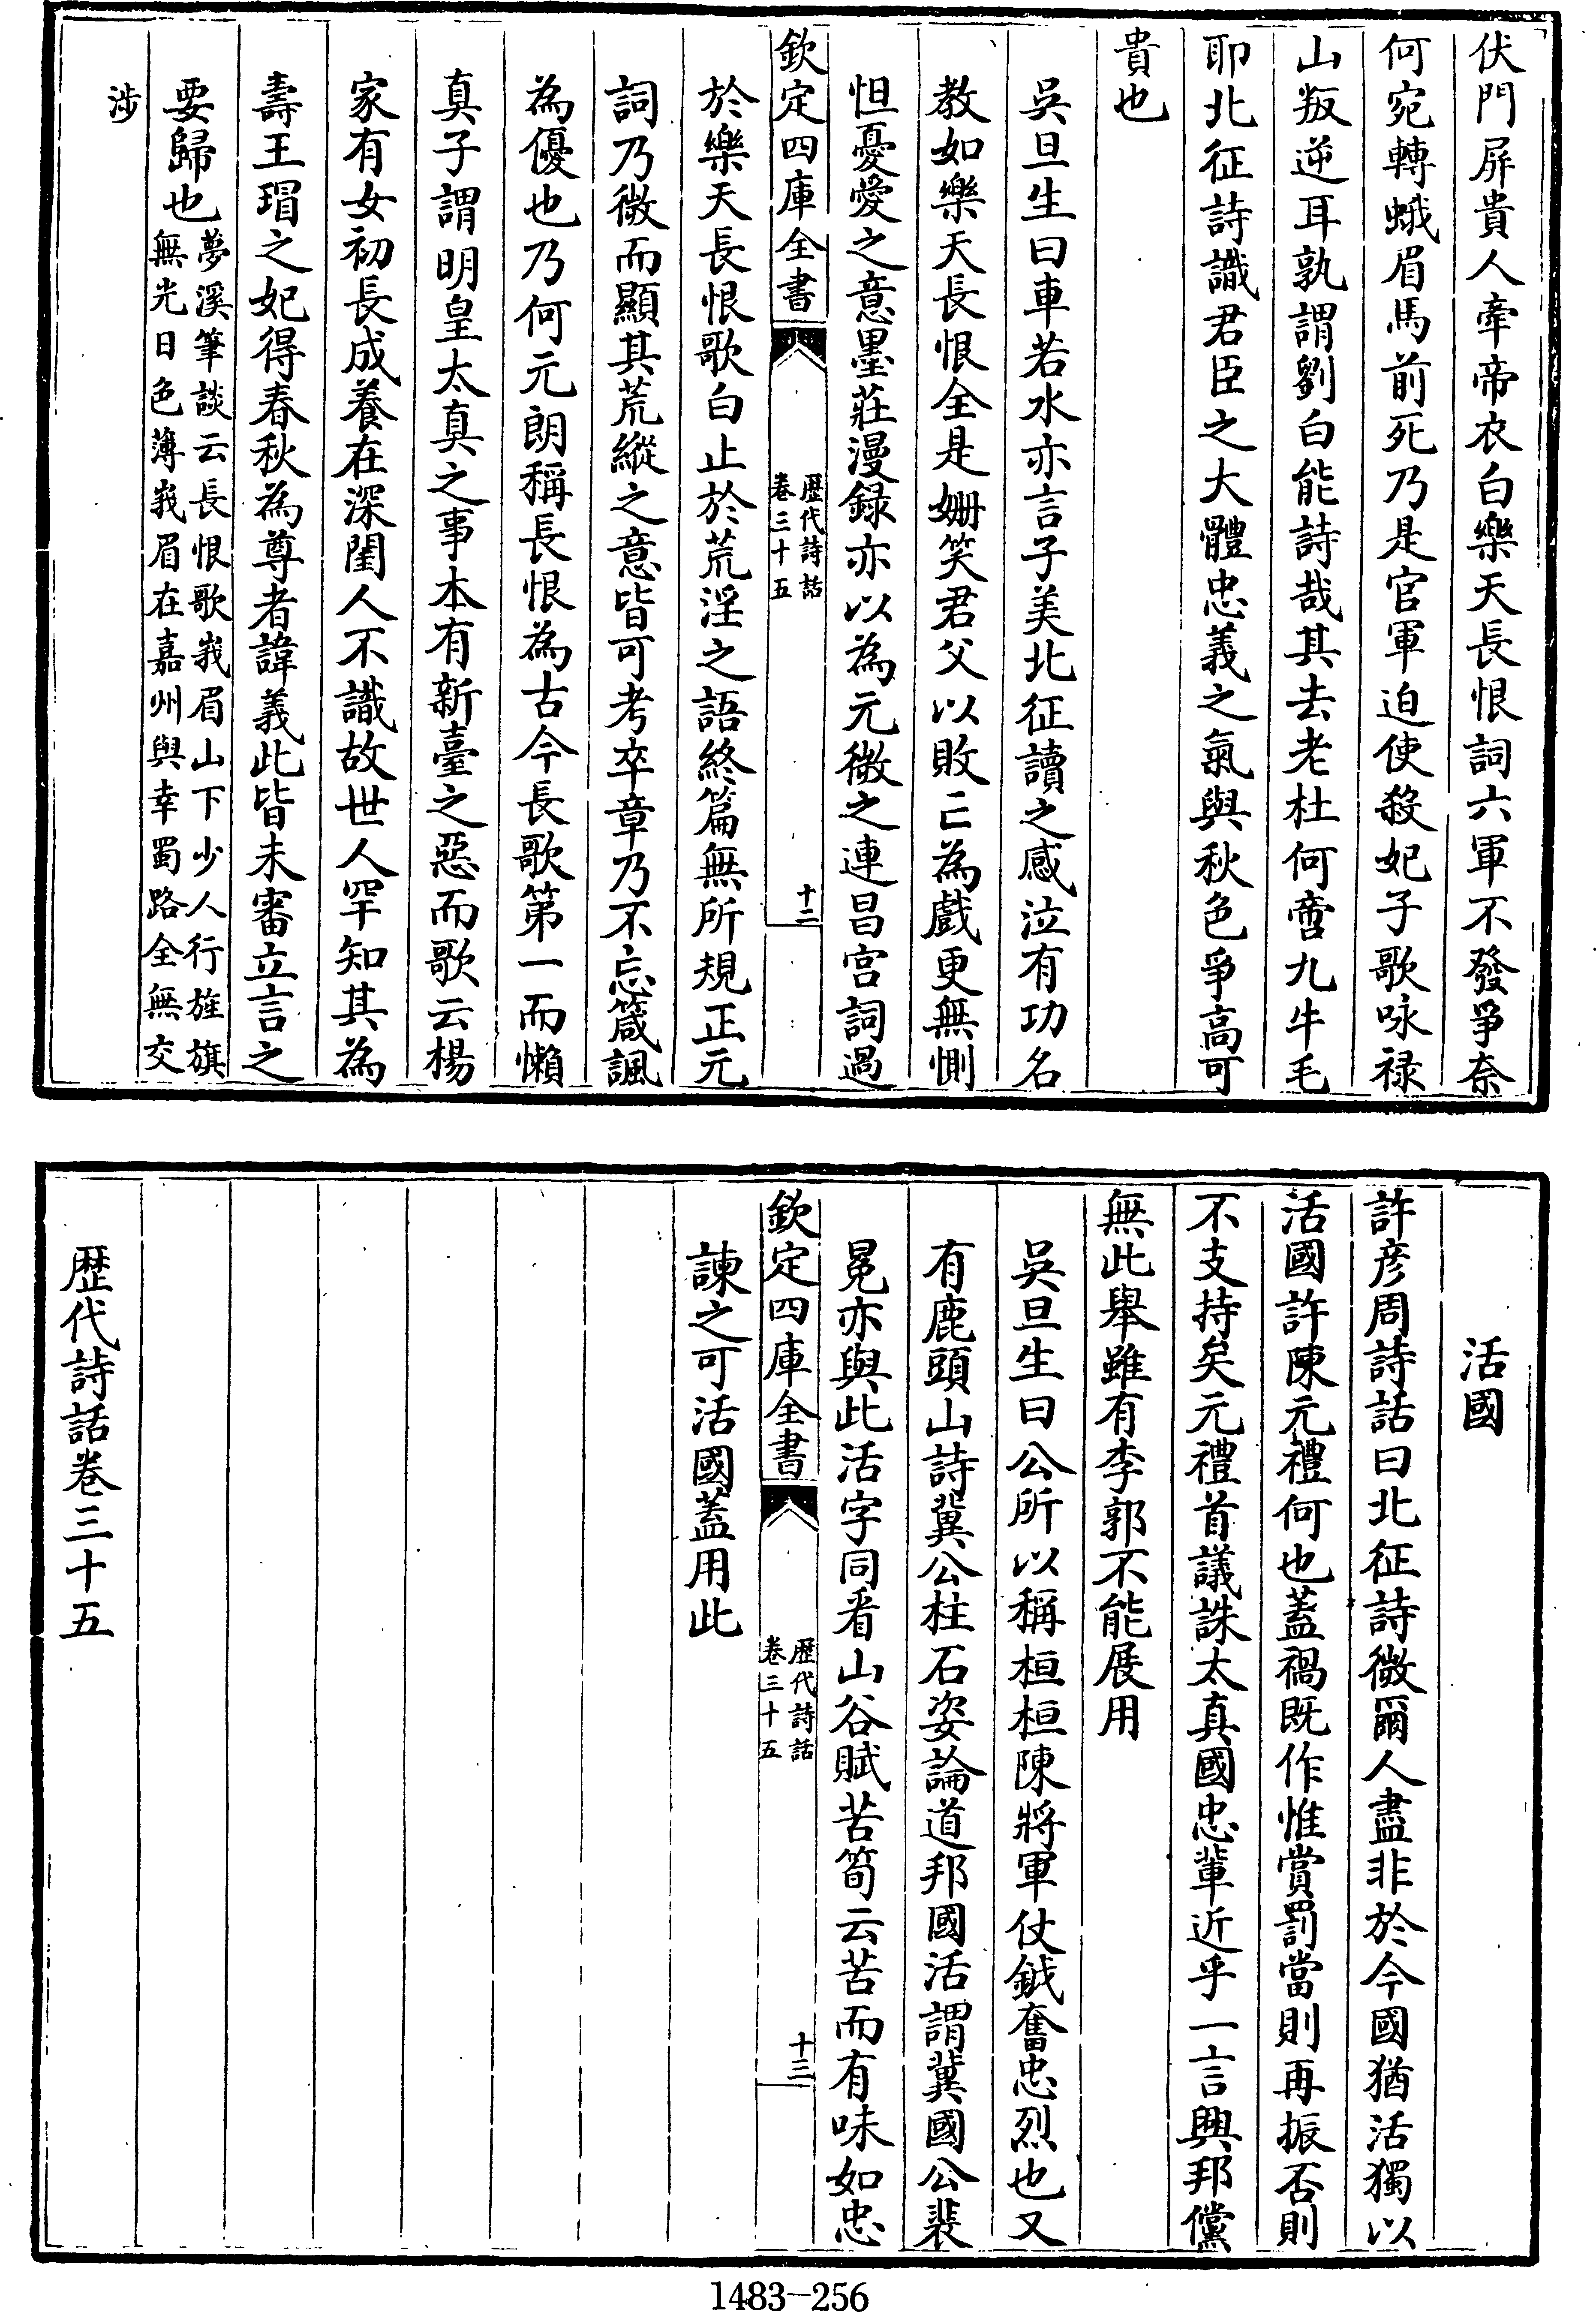 伏門屏貴人牽帝衣白樂天長恨詞六軍不發爭奈
何宛轉蛾眉馬前死乃是官軍迫使殺妃子歌咏祿
山叛逆耳孰謂劉白能詩哉其去老杜何啻九牛毛
耶北征詩識君臣之大體忠義之氣與秋色爭高可
貴也
吳旦生曰車若水亦言子美北征讀之感泣有功名
教如樂天長恨全是姍笑君父以敗亡為戲更無惻
怛憂愛之意墨莊漫録亦以為元微之連昌宫詞過
欽定四庫全書
歴代詩話
卷三十五
十二
於樂天長恨歌白止於荒淫之語終篇無所規正元
詞乃微而顯其荒縱之意皆可考卒章乃不忘箴諷
為優也乃何元朗稱長恨為古今長歌第一而懶
真子謂明皇太真之事本有新臺之惡而歌云楊
家有女初長成養在深閨人不識故世人罕知其為
壽王瑁之妃得春秋為尊者諱義此皆未審立言之
要歸也
夢溪筆談云長恨歌峩眉山下少人行旌旗
無光日色薄峩眉在嘉州與幸蜀路全無交
涉
活國
許彦周詩話曰北征詩微爾人盡非於今國猶活獨以
活國許陳元禮何也蓋禍既作惟賞罰當則再振否則
不支持矣元禮首議誅太真國忠軰近乎一言興邦儻
無此舉雖有李郭不能展用
吳旦生曰公所以稱桓桓陳將軍仗鉞奮忠烈也又
有鹿頭山詩冀公柱石姿論道邦國活謂冀國公裴
冕亦與此活字同看山谷賦苦筍云苦而有味如忠
欽定四庫全書
歴代詩話
卷三十五
十三
諫之可活國蓋用此
歴代詩話卷三十五
1483-256